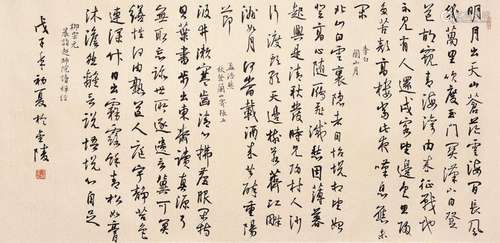 明月出天山蒼茫雲海間長風
幾萬里吹度玉門關漢下白登
道胡窺青海灣由來征戰地
不見有人還戍客望邊色思歸
多苦顏高樓當此夜嘆息應未
閑
李白
關山月
北山白雲裏隱者自怡悅相望始
登高心隨雁飛滅愁因薄暮
起興是清秋發時見歸村人沙
行渡頭歇天邊樹若薺江畔
洲如月何當載酒來共醉重陽
節
孟浩然
秋登蘭山寄張五
汲井漱寒齒清心拂塵服閑持
貝葉書步出東齋讀真源了
無取妄跡世所逐遺言冀可冥
繕性何由熟道人庭宇靜苔色
連深竹日出霧露餘青松如膏
沐澹然離言說悟悅心自足
柳宗元
晨詣超師院讀禪經
戊子年初夏於金陵